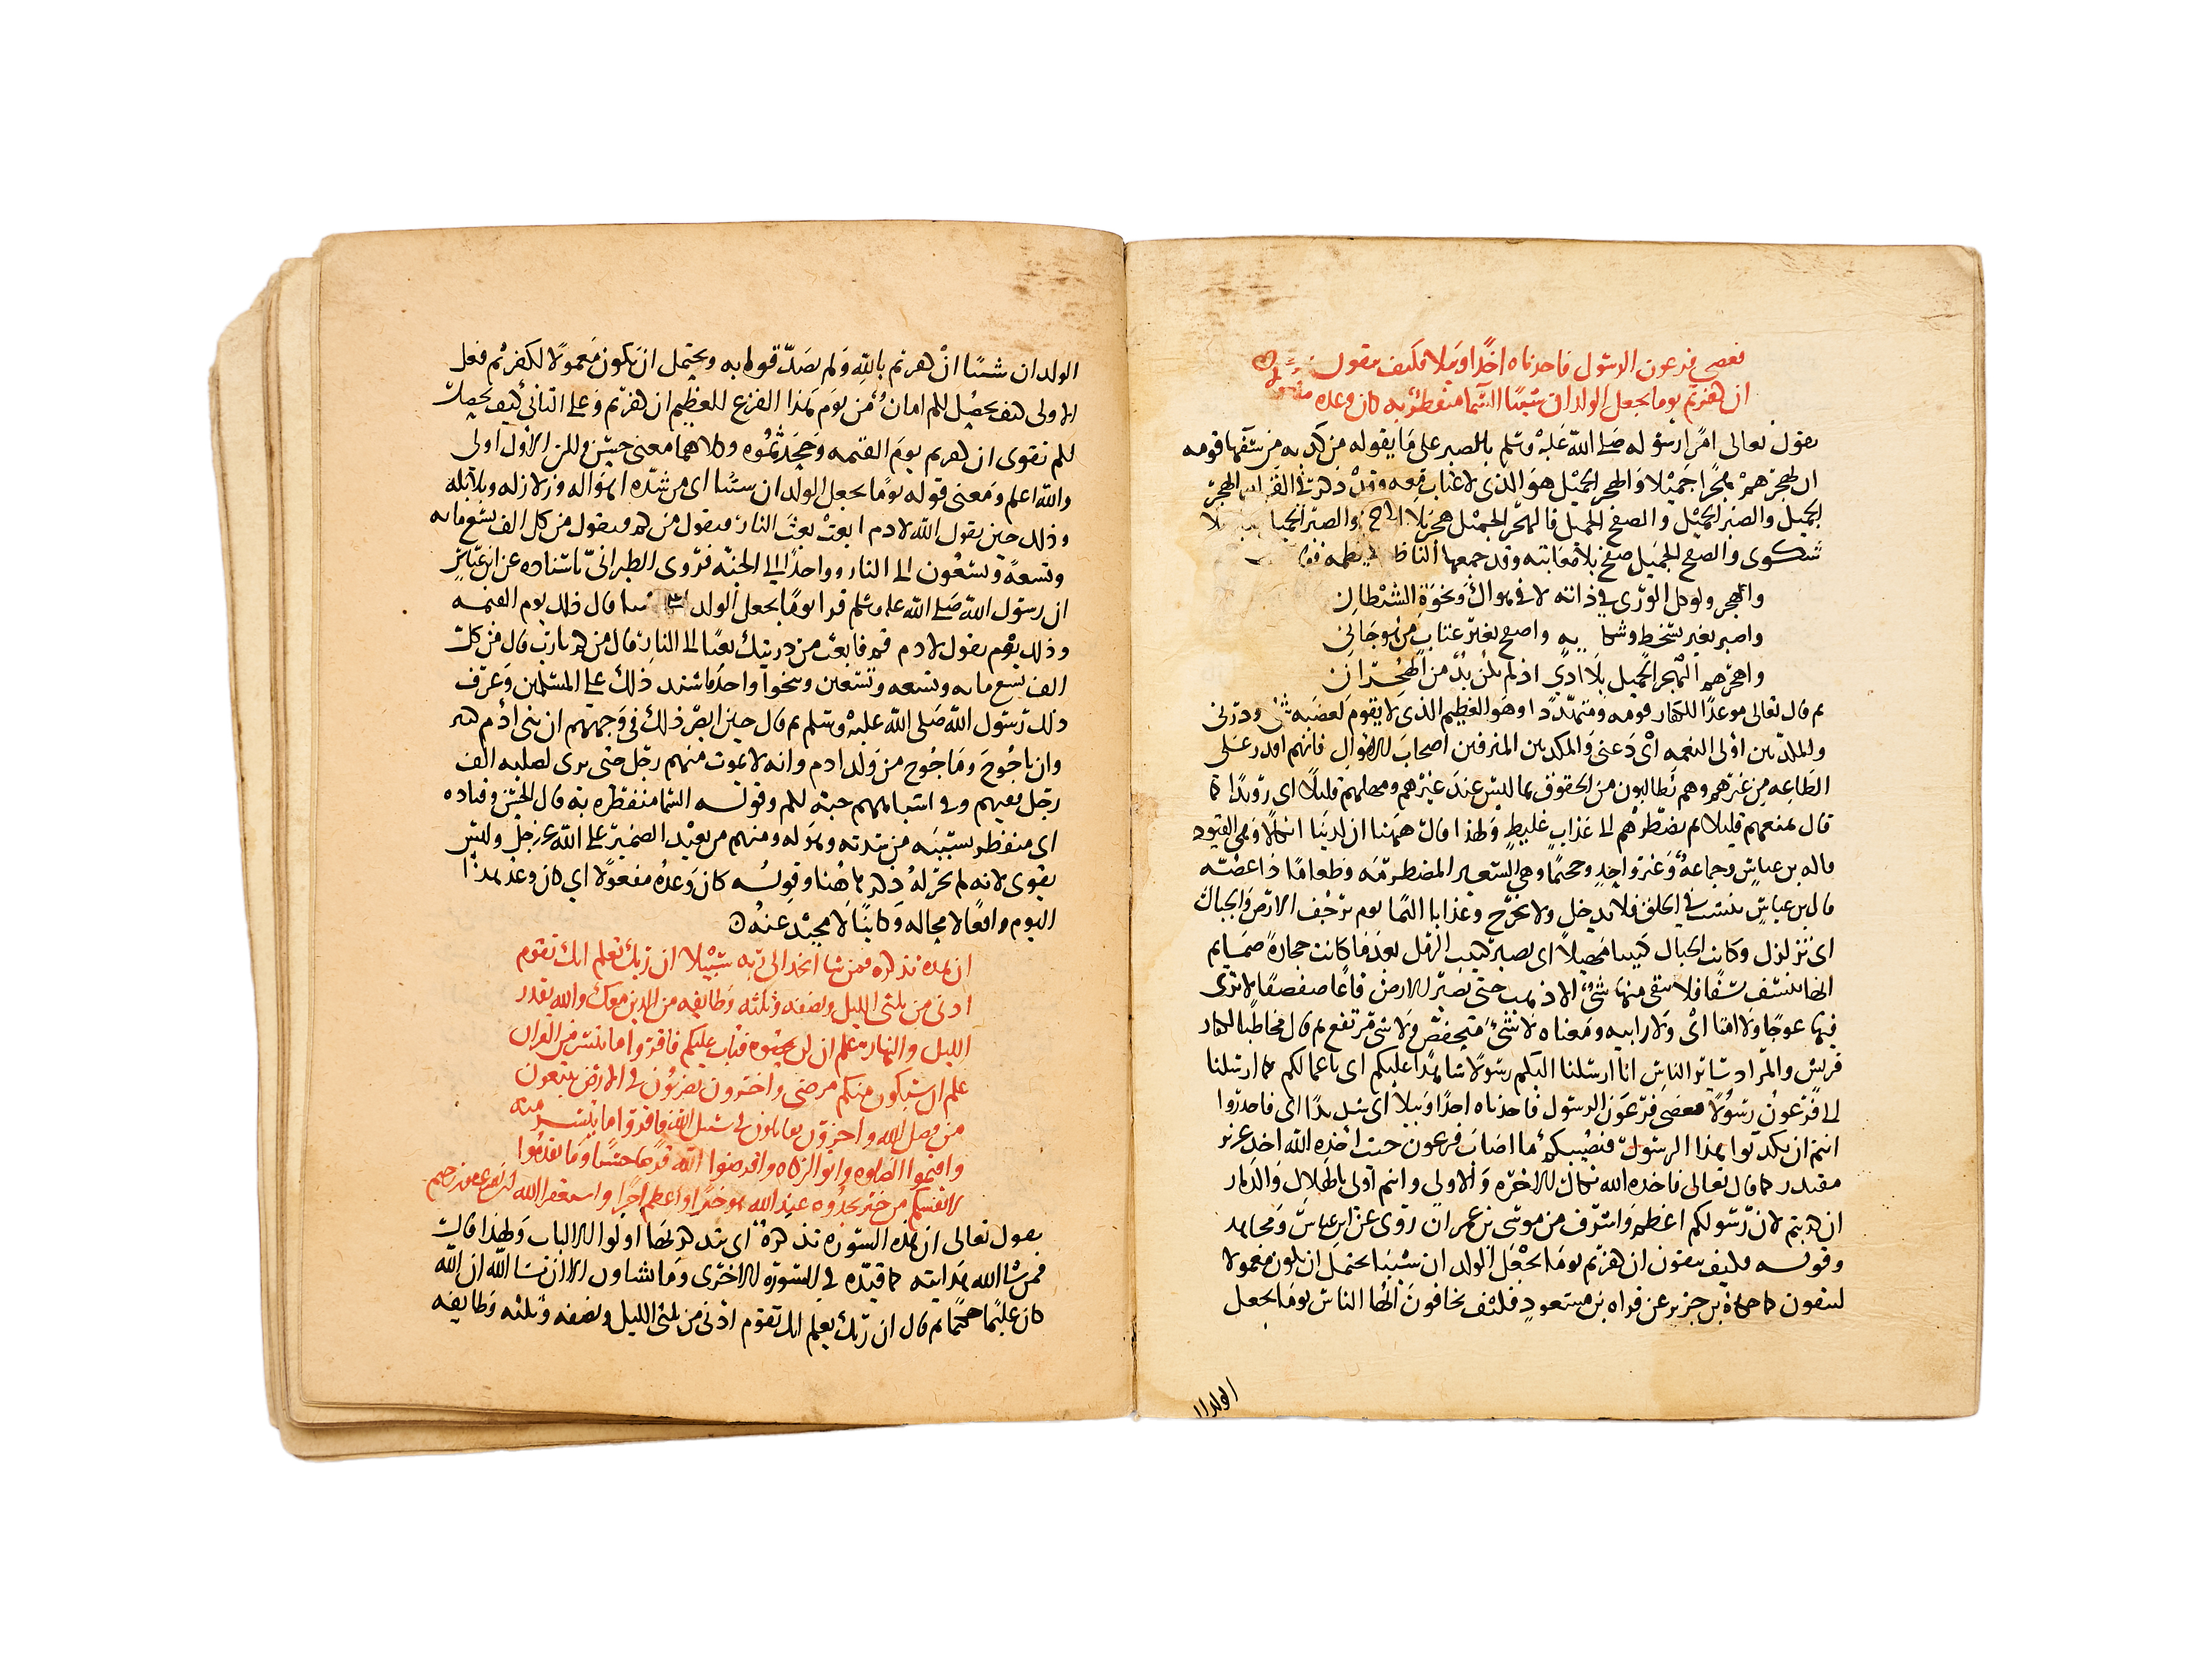 فعصى فرعون الرسول فاخذناه اخذا وبيلا فكيف تتقون
ان كفرتم يوما يجعل الولدان شيبا السما منفطر به كان وعده مفعولا
يقول تعالى امرا رسوله صلى الله عليه وسلم بالصبر على ما يقوله من كذبه من سفها قومه
ان يهجرهم هجرا جميلا والهجر الجميل هو الذي لا عتاب معه وقد ذكر في القران الهجر
الجميل والصبر الجميل والصفح الجميل فالهجر الجميل هجر بلا والصبر الجميل بلا
شكوى والصفح الجميل صفح بلا معاتبه وقد جمعها
والهجر ولوكل الورى في ذاته لا في هواك ونخوة الشيطان
واصبر بغير تسخط وشكايه واصفح بغير عتاب من هو جاني
واهجرهم الهجر الجميل بلا اذى اذ لم يكن بد من الهجران
ثم قال تعالى موعدا للكفار قومه ومتهددا وهو العظيم الذي لا يقوم لغضبه شي وذرني
والمكذبين اولى النعمه اي دعني والمكذبين المترفين اصحاب الاموال فانهم اقدر على
الطاعه من غيرهم وهم يطالبون من الحقوق بما ليس عند غيرهم ومهلهم قليلا اي رويدا كما
قال نمتعهم قليلا ثم نضطرهم الى عذاب غليظ ولهذا قال ههنا ان لدينا انكالا وهي القيود
قاله بن عباس وجماعه وغير واحد وجحيما وهي السعير المضطرمه وطعاما ذا غصه
قال بن عباس ينشب في الحلق فلا يدخل ولا يخرج وعذابا اليما يوم ترجف الارض والجبال
اي تزلزل وكانت الجبال كثيبا مهيلا اي تصير ككثيب الرمل بعد ما كانت حجارة صما ثم
انها تنسف نسفا فلا يبقى منها شي الا ذهب حتى تصير الارض قاعا صفصفا لا ترى
فيها عوجا ولا امتا اي ولا رابيه ومعناه لا شي منخفض ولا شي مرتفع ثم قال مخاطبا لكفار
قريش والمراد سائر الناس انا ارسلنا اليكم رسولا شاهدا عليكم اي باعمالكم كما ارسلنا
الى فرعون رسولا فعصى فرعون الرسول فاخذناه اخذا وبيلا اي شديدا اي فاحذروا
انتم ان تكذبوا بهذا الرسول فيصيبكم ما اصاب فرعون حيث اخذه الله اخذ عزيز
مقتدر كما قال تعالى فاخذه الله نكال الاخره والاولى وانتم اولى بالهلاك والدمار
ان كذبتم لان رسولكم اعظم واشرف من موسى بن عمران روى عن ابن عباس ومجاهد
وقوله فكيف تتقون ان كفرتم يوما يجعل الولدان شيبا يحتمل ان يكون معمولا
لتتقون كما حكاه بن جرير عن قراه بن مسعود فكيف تخافون ايها الناس يوما يجعل
الولدان
الولدان شيبا ان كفرتم بالله ولم تصدقوا به ويحتمل ان يكون معمولا لكفرتم فعلى
الاولى كيف يحصل لكم امان من يوم هذا الفزع العظيم ان كفرتم وعلى الثاني كيف يحصل
لكم تقوى ان كفرتم يوم القيمه وجحدتموه وكلاهما معنى حسن ولكن الاول اولى
والله اعلم ومعنى قوله يوما يجعل الولدان شيبا اي من شده اهواله وزلازله وبلابله
وذلك حين يقول الله لادم ابعث بعث النار فيقول من كم فيقول من كل الف تسع مايه
وتسعة وتسعون الى النار وواحدا الى الجنه فروى الطبراني باسناده عن ابن عباس
ان رسول الله صلى الله عليه وسلم قرا يوما يجعل الولدان شيبا قال ذلك يوم القيمه
وذلك يوم يقول لادم قم فابعث من ذريتك بعثا الى النار قال من كم يا رب قال من كل
الف تسع مايه وتسعه وتسعين وينجوا واحد فاشتد ذلك على المسلمين وعرف
ذلك رسول الله صلى الله عليه وسلم ثم قال حين ابصر ذلك في وجههم ان بني ادم كثير
وان ياجوج وماجوج من ولد ادم وانه لا يموت منهم رجل حتى يرى لصلبه الف
رجل ففيهم وفي اشباههم جنة لكم وقوله السما منفطر به قال الحسن وقتاده
اي منفطر بسببه من شدته وهوله ومنهم من يعيد الضمير على الله عز وجل وليس
بقوى لانه لم يجر له ذكر هاهنا وقوله كان وعده مفعولا اي كان وعد هذا
اليوم واقعا لا محاله وكائنا لا محيد عنه
ان هذه تذكره فمن شا اتخذ الى ربه سبيلا ان ربك يعلم انك تقوم
ادنى من ثلثي الليل ونصفه وثلثه وطايفه من الذين معك والله يقدر
الليل والنهار علم ان لن تحصوه فتاب عليكم فاقروا ما تيسر من القران
علم ان سيكون منكم مرضى واخرون يضربون في الارض يبتغون
من فضل الله واخرون يقاتلون في سبيل الله فاقروا ما تيسر منه
واقيموا الصلوه واتوا الزكاه واقرضوا الله قرضا حسنا وما تقدموا
لانفسكم من خير تجدوه عند الله هو خيرا واعظم اجرا واستغفروا الله ان الله غفور رحيم
يقول تعالى ان هذه السوره تذكرة اي يتذكر بها اولوا الالباب ولهذا قال
فمن شا الله هدايته كما قيده في السوره الاخرى وما تشاون الا ان يشا الله ان الله
كان عليما حكيما ثم قال ان ربك يعلم انك تقوم ادنى من ثلثي الليل ونصفه وثلثه وطايفه